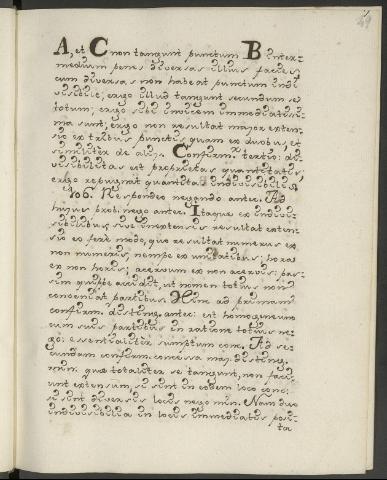 A, et C non tangunt punctum B inter-
medium penes diversas illius facies,
cum diversas non habeat punctum indi-
visibile; ergo illud tangunt secundum se
totum; ergo sibi invicem immediatissi-
ma sunt; ergo non resultat major exten-
sio ex tribus punctis quam ex duobus, et
similiter de aliis. Confirm. tertio: di-
visibilitas est proprietas quantitatis;
ergo repugnat quantitas indivisibilis.
106. Respondeo negando antec. Ad
hujus prob. nego antec. Itaque ex indivi-
sibilibus, sive inextensis resultat exten-
sio eo fere modo, quo resultat numerus ex
non numeris, nempe ex unitatibus; hora
ex non horis; acervum ex non acervis: pas-
sim quippe accidit, ut nomen totius non
conveniat partibus. Hinc ad primam
confirm. disting. antec: est homogeneum
cum suis partibus in ratione totius ne-
go: essentialiter sumptum conc. Ad se-
cundam confirm. concessa maj. disting.
min. quae totaliter se tangunt, non faci-
unt extensum, si sint in eodem loco conc:
si sint diversis locis nego min. Nam duo
indivisibilia in locis immediatis posi-
ta